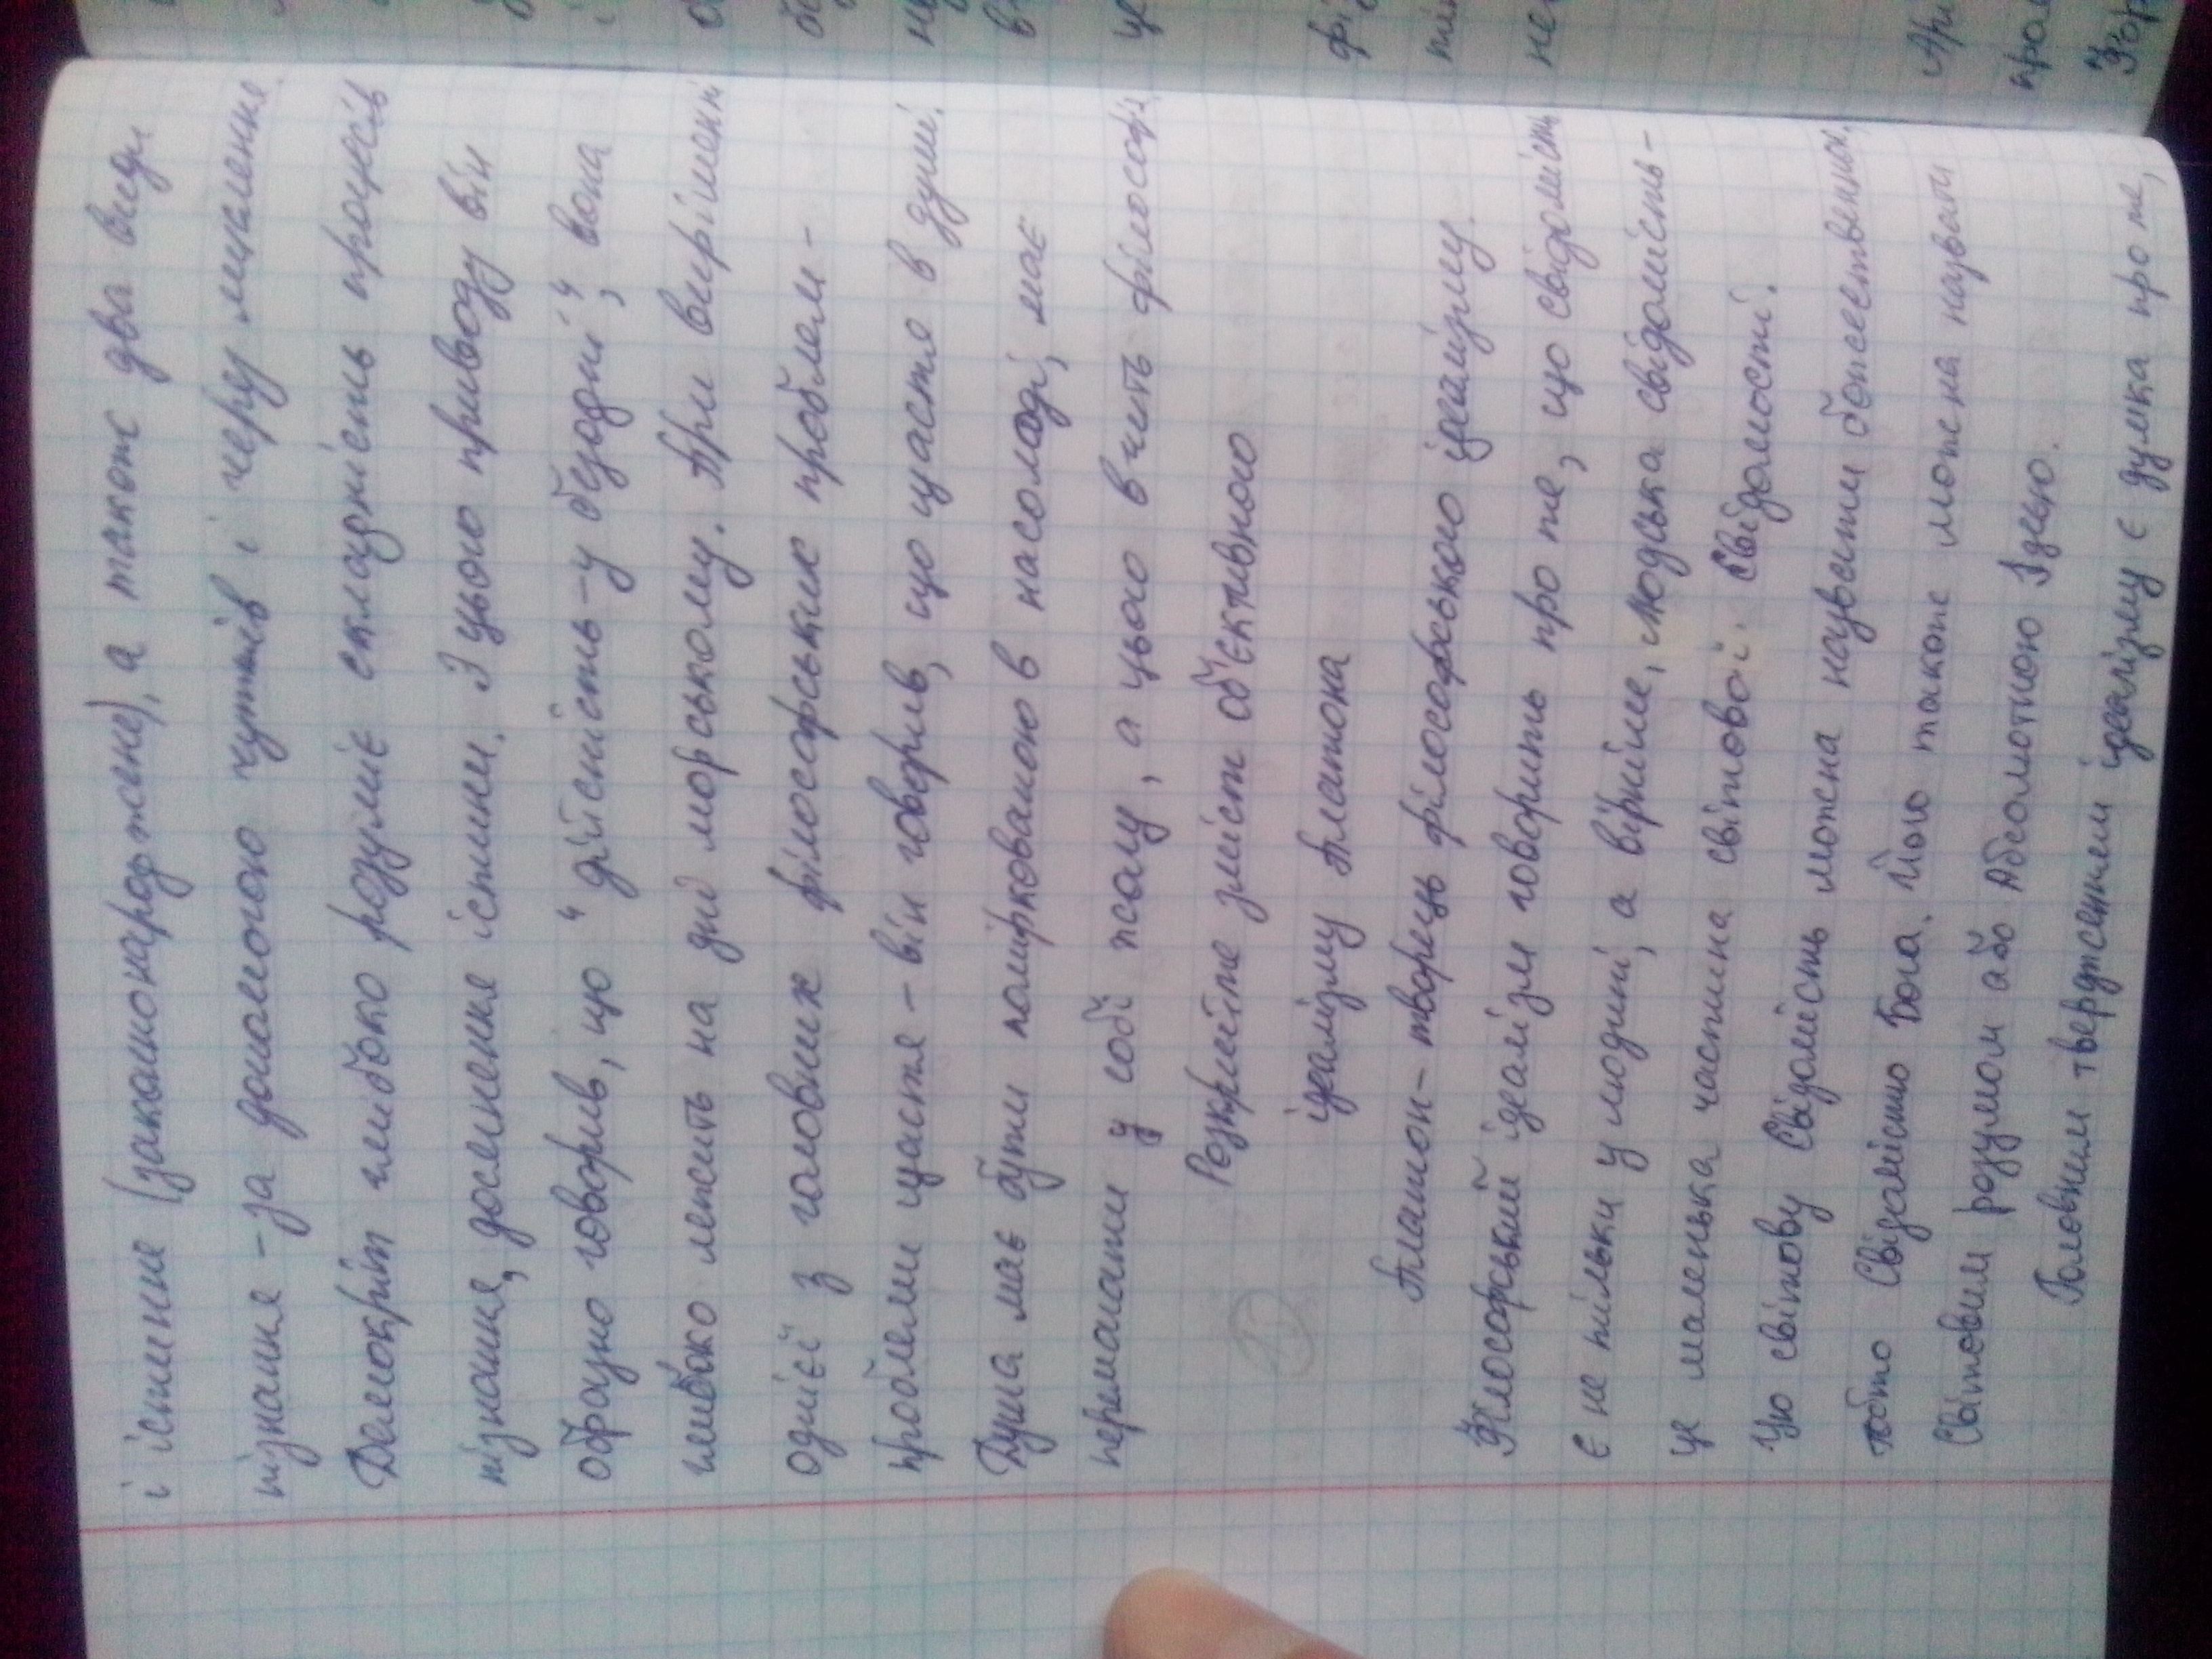 і істинне (законнонароджене), а також два види
пізнання – за допомогою чуттів і через мислення.
Демокріт глибоко розуміє складність процесів
пізнання, досягнення істини. З цього приводу він
образно говорив, що "дійсність – у безодні", вона
глибоко лежить на дні морському. При вирішенні
однієї з головних філософських проблем –
проблеми щастя – він говорив, що щастя в душі.
Душа має бути поміркованою в насолоді, має
перемагати у собі жагу, а цього вчить філософія
Розкрийте зміст об'єктивного
ідеалізму Платона
Платон – творець філософського ідеалізму.
Філософський ідеалізм говорить про те, що свідомість
є не тільки у людині, а вірніше, людська свідомість –
це маленька частина світової Свідомості.
Цю світову Свідомість можна назвати божественною,
тобто Свідомістю Бога. Його також можна назвати
Світовим розумом або Абсолютною Ідеєю.
Головним твердженням ідеалізму є думка про те,